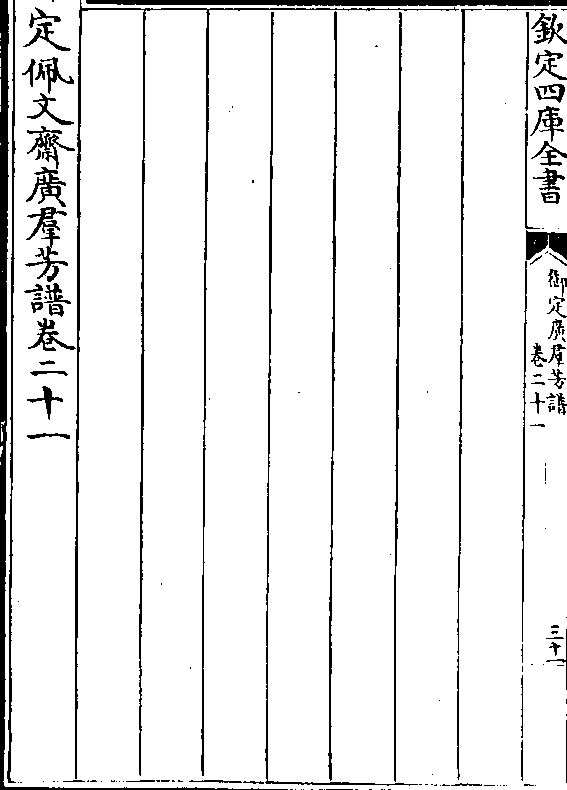 欽定四庫全書
御定廣羣芳譜
卷二十一
三十一
定佩文齋廣羣芳譜卷二十一